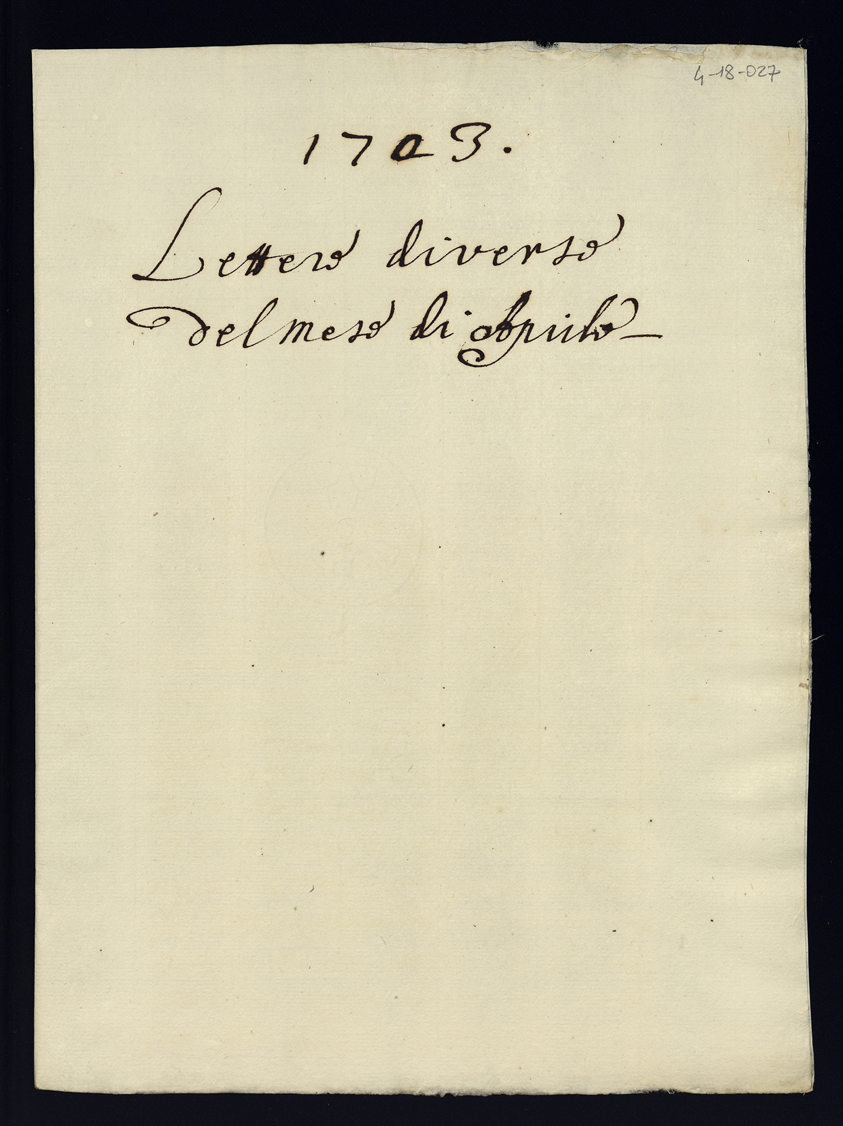 4-18-027
1703.
Lettere diverse
Del mese di Aprile